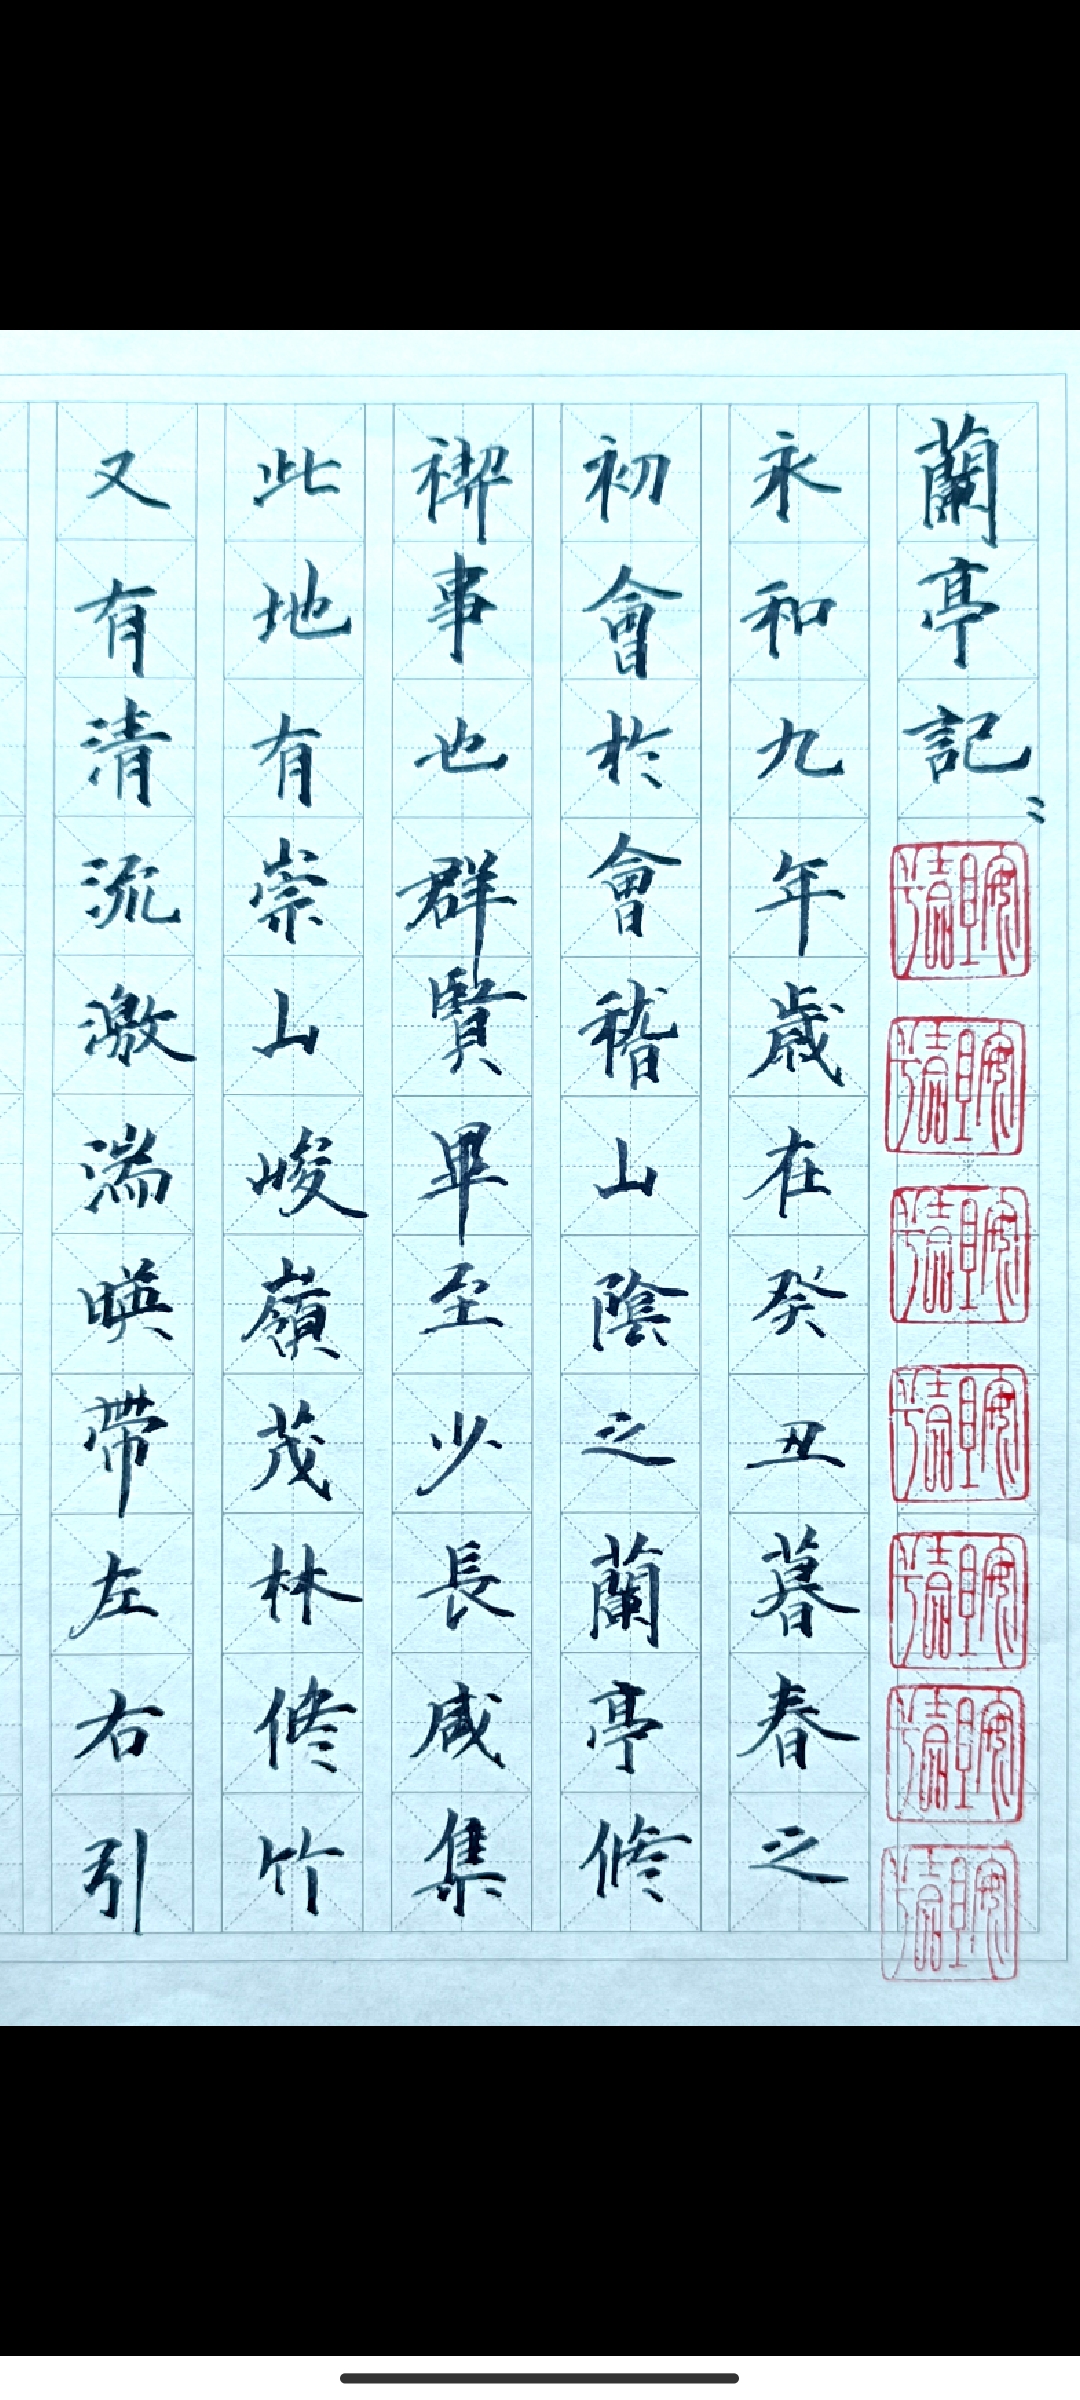 蘭亭記
永和九年歲在癸丑暮春之
初會於會稽山陰之蘭亭脩
禊事也群賢畢至少長咸集
此地有崇山峻嶺茂林脩竹
又有清流激湍暎帶左右引